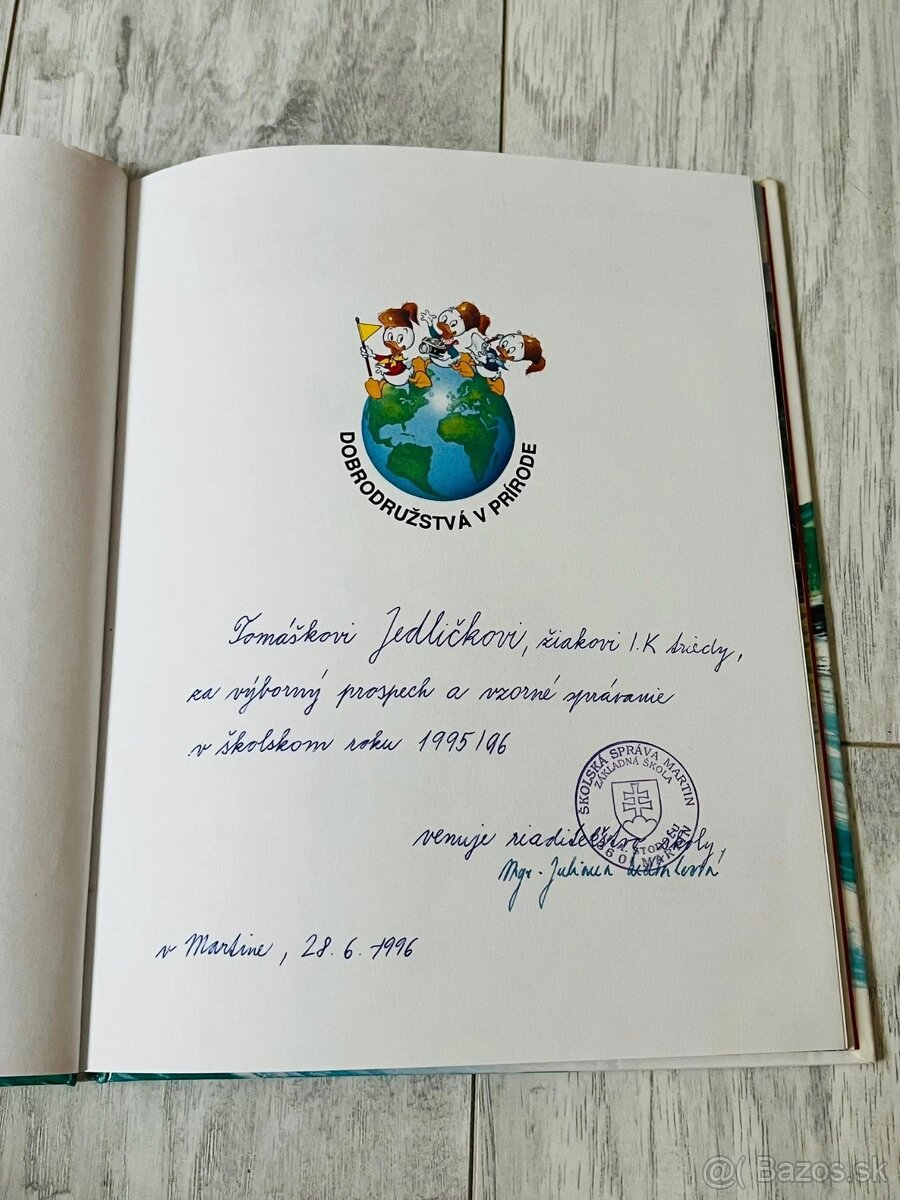 DOBRODRUŽSTVÁ V PRÍRODE
Tomáškovi Jedličkovi, žiakovi I.K triedy,
za výborný prospech a vzorné správanie
v školskom roku 1995/96
ŠKOLSKÁ SPRÁVA MARTIN
ZÁKLADNÁ ŠKOLA
MARTIN
venuje riaditeľstvo školy,
Mgr. Juliana
v Martine, 28. 6. 1996
@( Bazos.sk